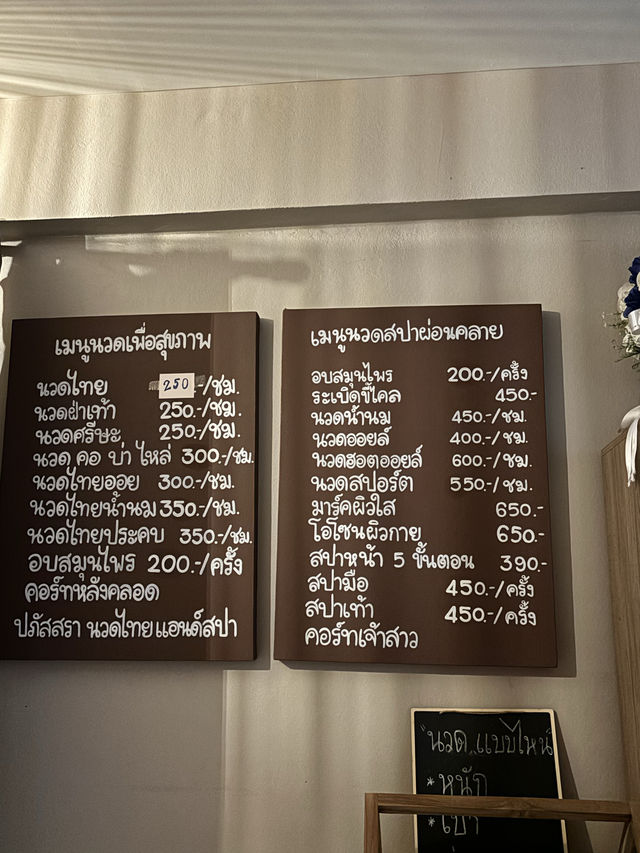 เมนูนวดเพื่อสุขภาพ
นวดไทย 250.-/ชม.
นวดฝ่าเท้า 250.-/ชม.
นวดศรีษะ 250.-/ชม.
นวด คอ บ่า ไหล่ 300.-/ชม.
นวดไทยออย 300.-/ชม.
นวดไทยน้ำนม 350.-/ชม.
นวดไทยประคบ 350.-/ชม.
อบสมุนไพร 200.-/ครั้ง
คอร์ทหลังคลอด
ปภัสสรา นวดไทยแอนด์สปา
เมนูนวดสปาผ่อนคลาย
อบสมุนไพร 200.-/ครั้ง
ระเบิดขี้ไคล 450.-
นวดน้ำนม 450.-/ชม.
นวดออยล์ 400.-/ชม.
นวดฮอตออยล์ 600.-/ชม.
นวดสปอร์ต 550.-/ชม.
มาร์คผิวใส 650.-
โอโซนผิวกาย 650.-
สปาหน้า 5 ขั้นตอน 390.-
สปามือ 450.-/ครั้ง
สปาเท้า 450.-/ครั้ง
คอร์ทเจ้าสาว
"นวด แบบไหน"
*หนัก
*เบา